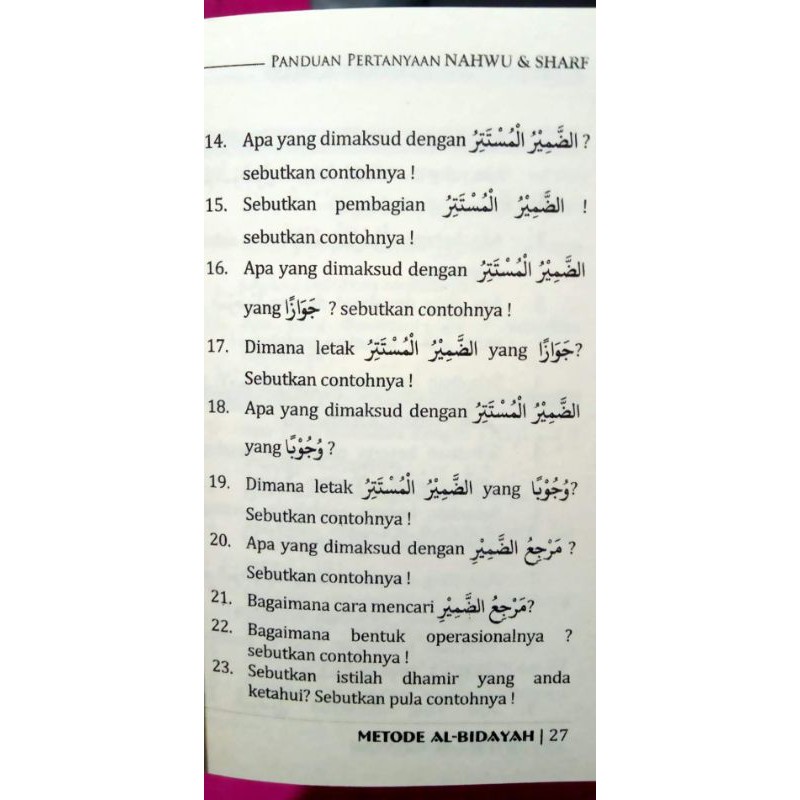 PANDUAN PERTANYAAN NAHWU & SHARF
14. Apa yang dimaksud dengan الضَّمِيْرُ الْمُسْتَتِرُ ?
sebutkan contohnya !
15. Sebutkan pembagian الضَّمِيْرُ الْمُسْتَتِرُ !
sebutkan contohnya !
16. Apa yang dimaksud dengan الضَّمِيْرُ الْمُسْتَتِرُ
yang جَوَازًا ? sebutkan contohnya !
17. Dimana letak الضَّمِيْرُ الْمُسْتَتِرُ yang جَوَازًا?
Sebutkan contohnya !
18. Apa yang dimaksud dengan الضَّمِيْرُ الْمُسْتَتِرُ
yang وُجُوْبًا ?
19. Dimana letak الضَّمِيْرُ الْمُسْتَتِرُ yang وُجُوْبًا?
Sebutkan contohnya !
20. Apa yang dimaksud dengan مَرْجِعُ الضَّمِيْرِ ?
Sebutkan contohnya !
21. Bagaimana cara mencari مَرْجِعُ الضَّمِيْرِ?
22. Bagaimana bentuk operasionalnya ?
sebutkan contohnya !
23. Sebutkan istilah dhamir yang anda
ketahui? Sebutkan pula contohnya !
METODE AL-BIDAYAH | 27